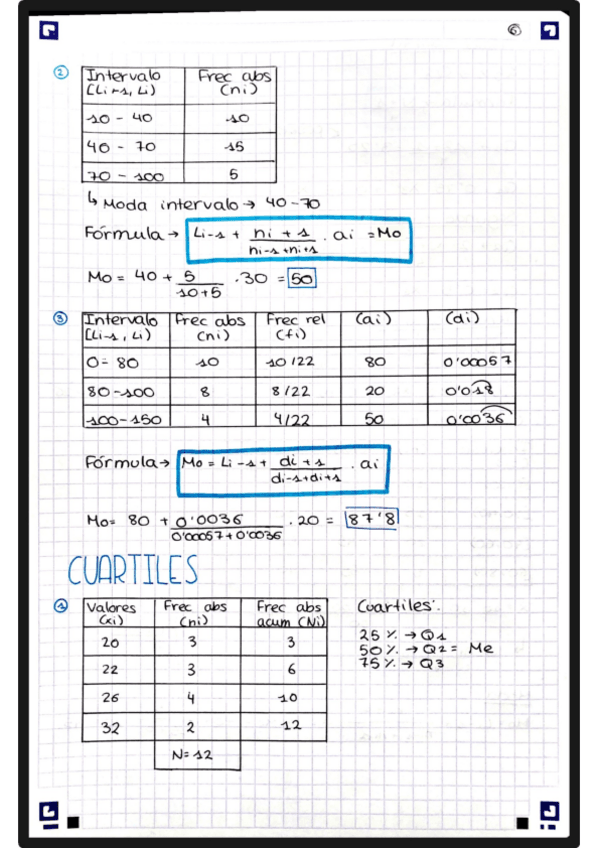 6
② Intervalo [Li-1, Li) Frec abs (ni)
10 - 40 10
40 - 70 15
70 - 100 5
↳ Moda intervalo → 40-70
Fórmula → Li-1 + ni+1 / ni-1+ni+1 · ai = Mo
Mo = 40 + 5 / 10+5 · 30 = 50
③ Intervalo [Li-1, Li) Frec abs (ni) Frec rel (fi) (ai) (di)
0 - 80 10 10/22 80 0'00057
80-100 8 8/22 20 0'018
100-150 4 4/22 50 0'0036
Fórmula → Mo = Li-1 + di+1 / di-1+di+1 · ai
Mo= 80 + 0'0036 / 0'0057+0'0036 · 20 = 87'8
CUARTILES
① Valores (xi) Frec abs (ni) Frec abs acum (Ni) Cuartiles:
20 3 3 25% → Q1
22 3 6 50% → Q2 = Me
26 4 10 75% → Q3
32 2 12
N=12